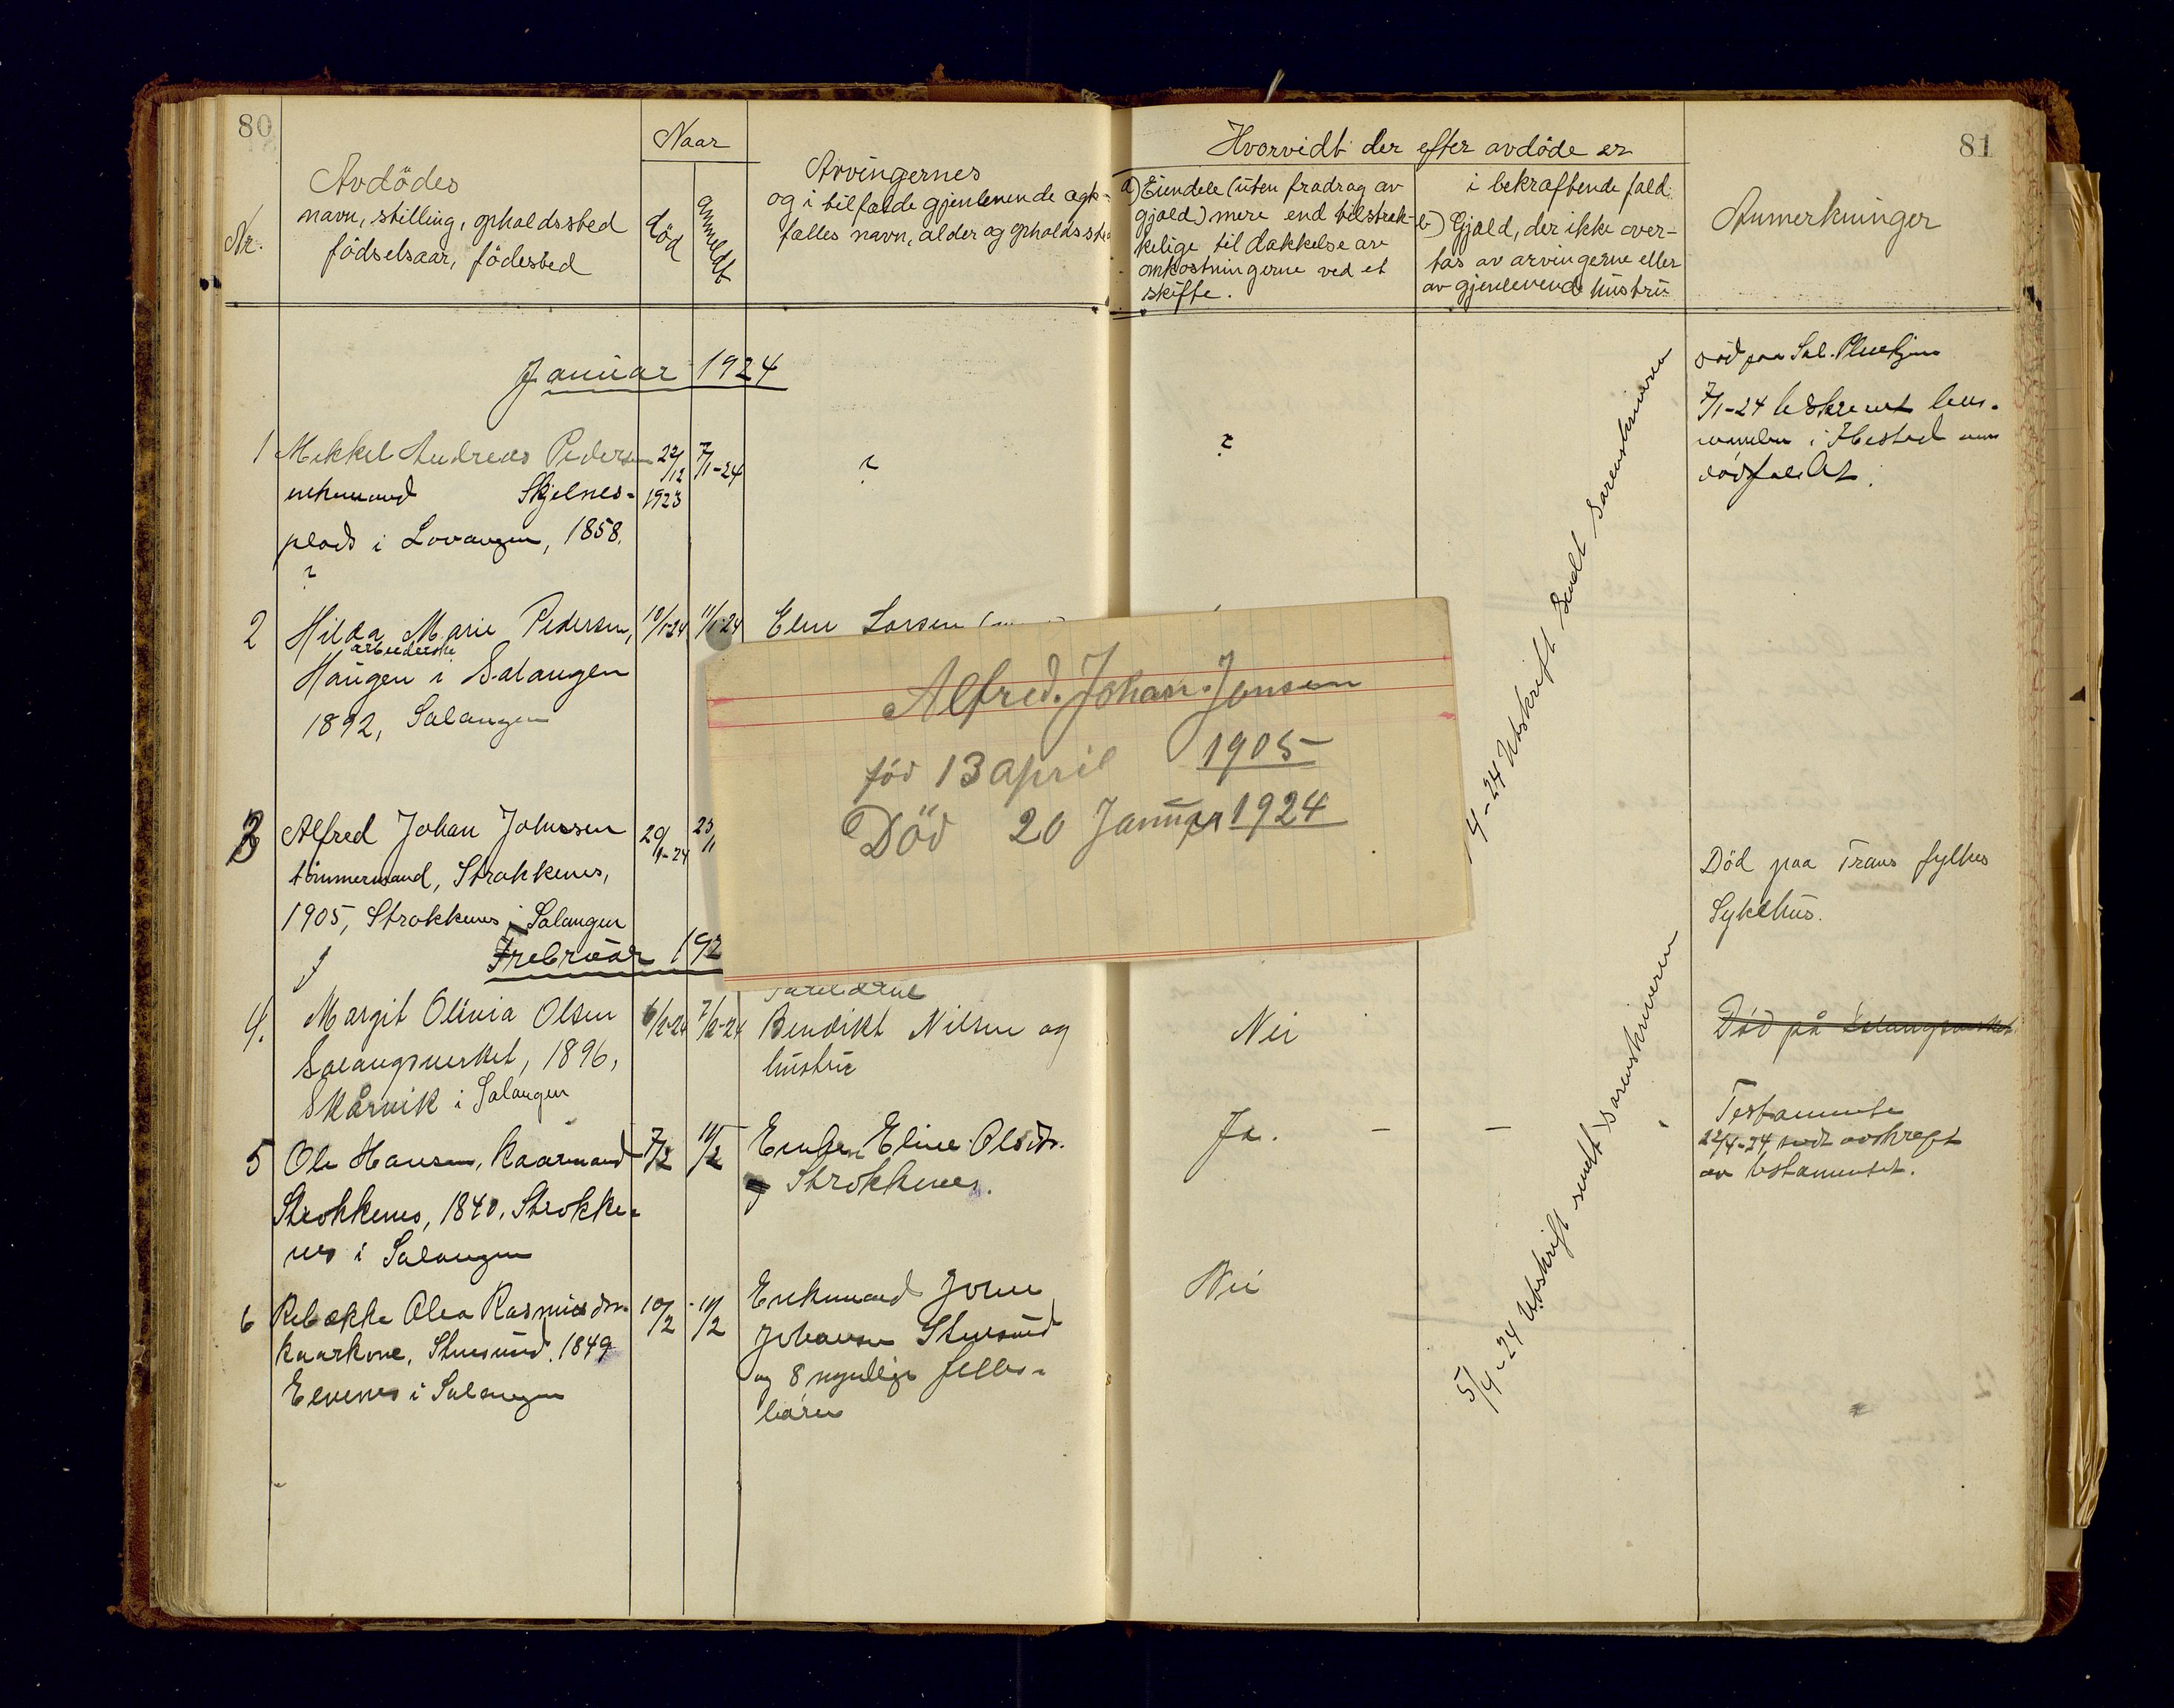 80
81
Nr.
Avdödes
navn, stilling, opholdssted
födselsaar, födested
Naar
död
anmeldt
Arvingernes
og i tilfælde gjenlevende ægte-
fælles navn, alder og opholdssted
Hvorvidt der efter avdöde er
a) Eiendele (uten fradrag av
gjæld) mere end tilstræk-
kelige til dækkelse av
omkostningerne ved et
skifte.
i bekræftende fald:
b) Gjæld, der ikke over-
tas av arvingerne eller
av gjenlevende hustru
Anmerkninger
Januar 1924
1 Mikkel Andreas Pedersen 22/12 7/1-24 ? ?
enkemand Skjelnes- 1923
plads i Lavangen, 1858.
?
död paa Sal. Pleiehjem
7/1-24 beskrevet lens-
manden i Ibestad om
dödsfaldet.
2 Hilda Marie Pedersen, 10/1-24 11/1-24 Elen Larsen
arbeiderske
Haugen i Salangen
1892, Salangen
Alfred. Johan. Jensen
föd 13 april 1905
Död 20 Januar 1924
3 Alfred Johan Johnsen 20/1-24 23/1
tömmermand, Strokkenes,
1905, Strokkenes i Salangen
Död paa Troms fylkes
Sykehus.
4-24 Utskrift sendt Sorenskriveren
Februar 192
4. Margit Olivia Olsen 6/2-24 7/2-24 Forældrene
Salangsverket, 1896, Bendikt Nilsen og Nei
Skårvik i Salangen hustru
Död på Salangsverket
5 Ole Hansen, Kaarmand 7/2 11/2 Enken Eline Olsdtr. Ja. - -
Strokkenes, 1840, Strokke- Strokkenes.
nes i Salangen
Testamente
22/4-24, sendt avskrift
av testamentet.
6 Rebekka Olea Rasmusdtr. 10/2 11/2 Enkemand Johan Nei
Kaarkone, Stensund. 1849 Johansen Stensund
Elvenes i Salangen og 8 myndige fælles-
barn
5/4-24 Utskrift sendt Sorenskriveren